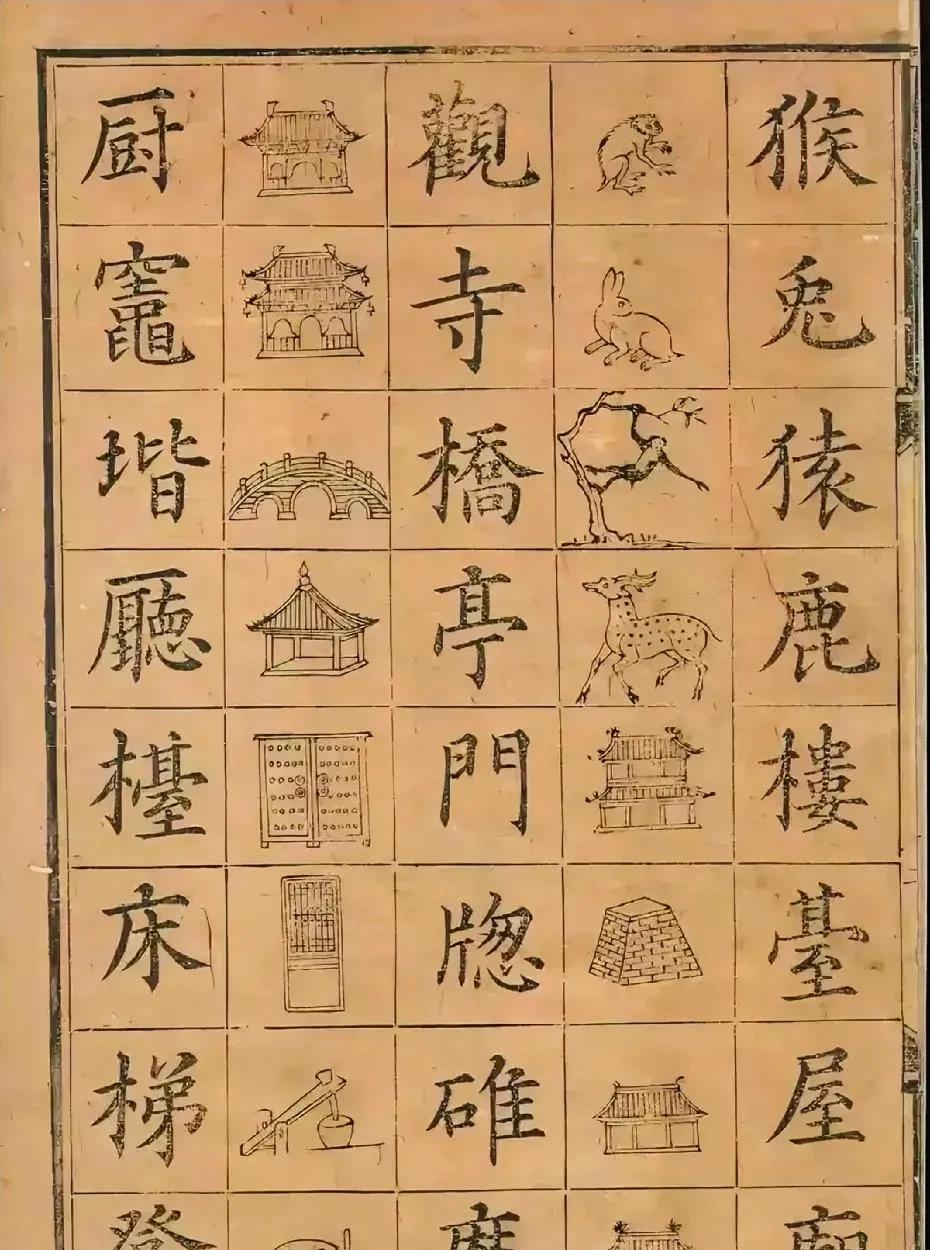 猴兔猿鹿樓臺屋
觀寺橋亭門牕碓
厨竈堦廳檯床梯